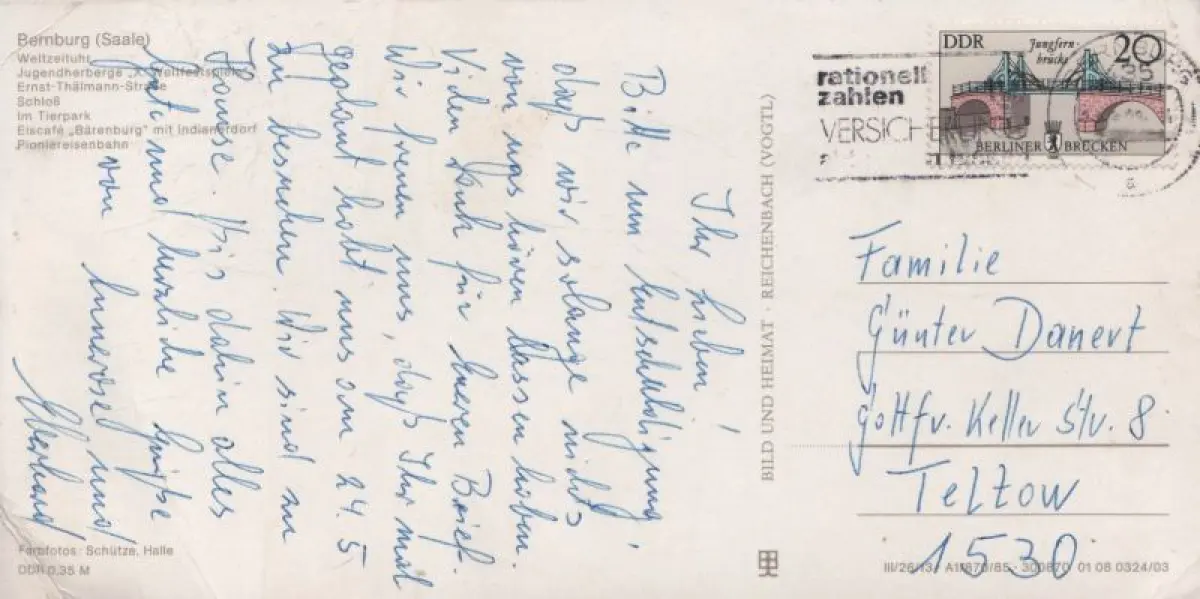 Bernburg (Saale)
Weltzeituhr
Jugendherberge „X. Weltfestspiele"
Ernst-Thälmann-Straße
Schloß
Im Tierpark
Eiscafé „Bärenburg" mit Indianerdorf
Pioniereisenbahn
Ihr Lieben!
Bitte um Entschuldigung,
daß wir solange nichts
von uns hören lassen haben.
Vielen Dank für Eueren Brief.
Wir freuen uns, daß Ihr mal
geplant habt uns am 24.5.
zu besuchen. Wir sind zu
Hause. Bis dahin alles
Gute und herzliche Grüße
von Annerose und
Eberhard
Farbfotos: Schütze, Halle
DDR 0,35 M
BILD UND HEIMAT · REICHENBACH (VOGTL)
rationell
zahlen
VERSICHERUNG
DDR
Jungfern-
brücke
20
BERLINER BRÜCKEN
Familie
Günter Danert
Gottfr. Keller Str. 8
Teltow
1530
III/26/13 A1/870/85 · 300870 01 08 0324/03